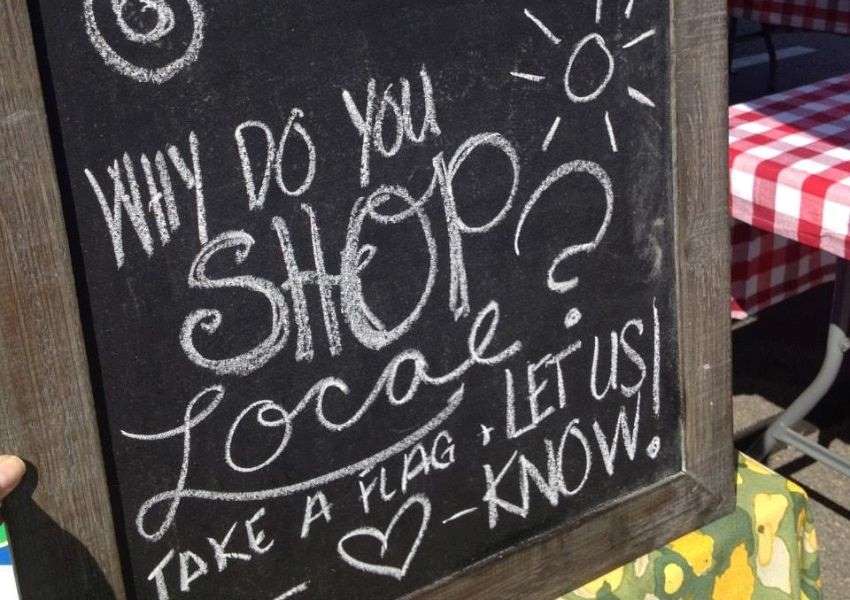 WHY DO YOU
SHOP
Local?
TAKE A FLAG + LET US
KNOW!